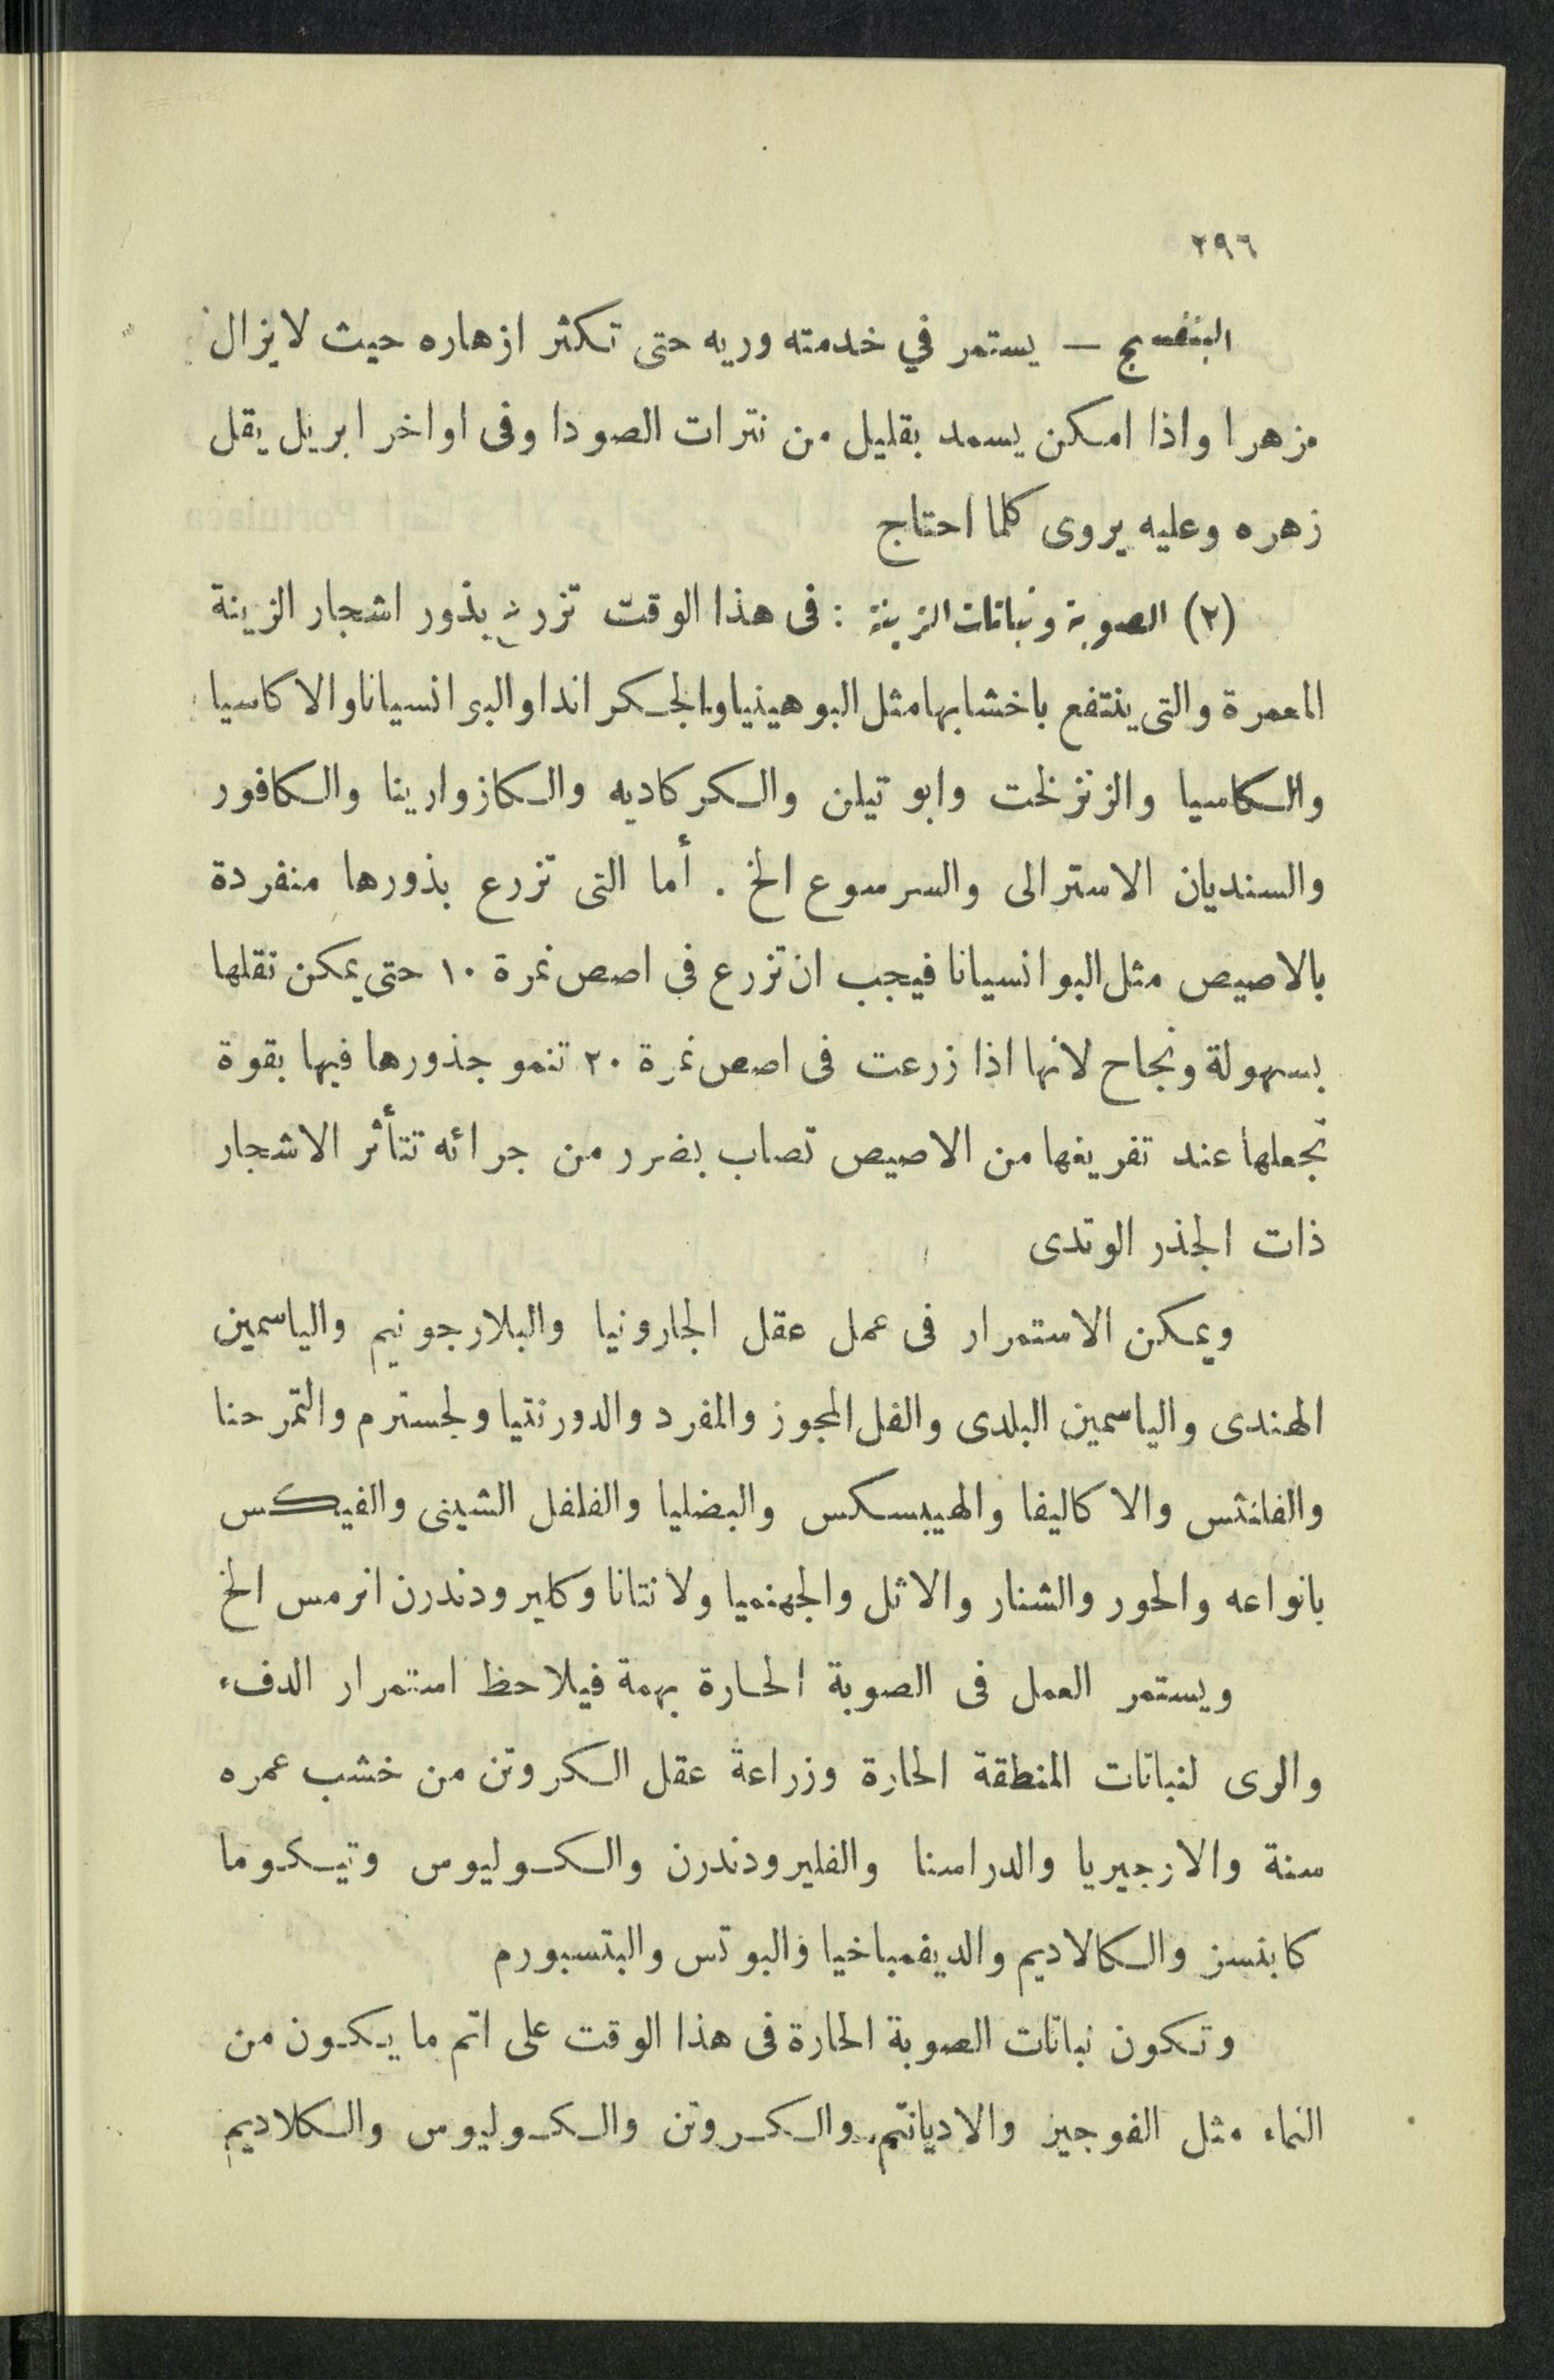 ٢٩٦
البنفسج — يستمر في خدمته وريه حتى تكثر ازهاره حيث لا يزال
مزهرا واذا امكن يسمد بقليل من نترات الصودا وفى اواخر ابريل يقل
زهره وعليه يروى كلما احتاج
(٢) الصوبة ونباتات الزينة : فى هذا الوقت تزرع بذور اشجار الزينة
المعمرة والتى ينتفع باخشابها مثل البوهينيا والجكراندا والبوانسيانا والاكاسيا
والكاسيا والزنزلخت وابو تيلن والكركاديه والكازوارينا والكافور
والسنديان الاسترالى والسرسوع الخ . أما التى تزرع بذورها منفردة
بالاصيص مثل البوانسيانا فيجب ان تزرع فى اصص نمرة ١٠ حتى يمكن نقلها
بسهولة ونجاح لانها اذا زرعت فى اصص نمرة ٢٠ تنمو جذورها فيها بقوة
تجعلها عند تفريغها من الاصيص تصاب بضرر من جرائه تتأثر الاشجار
ذات الجذر الوتدى
ويمكن الاستمرار فى عمل عقل الجارونيا والبلارجونيم والياسمين
الهندى والياسمين البلدى والفل المجوز والمفرد والدورنتيا ولجسترم والتمر حنا
والفلنثس والاكاليفا والهيبسكس والبضليا والفلفل الشينى والفيكس
بانواعه والحور والشنار والاثل والجهنميا ولانتانا وكليرودندرن انرمس الخ
ويستمر العمل فى الصوبة الحارة بهمة فيلاحظ استمرار الدفء
والرى لنباتات المنطقة الحارة وزراعة عقل الكروتن من خشب عمره
سنة والارجيريا والدراسنا والفليرودندرن والكوليوس وتيكوما
كابنسز والكالاديم والديفمباخيا والبوتس والبتسبورم
وتكون نباتات الصوبة الحارة فى هذا الوقت على اتم ما يكون من
النماء مثل الفوجيز والاديانتم والكروتن والكوليوس والكلاديم